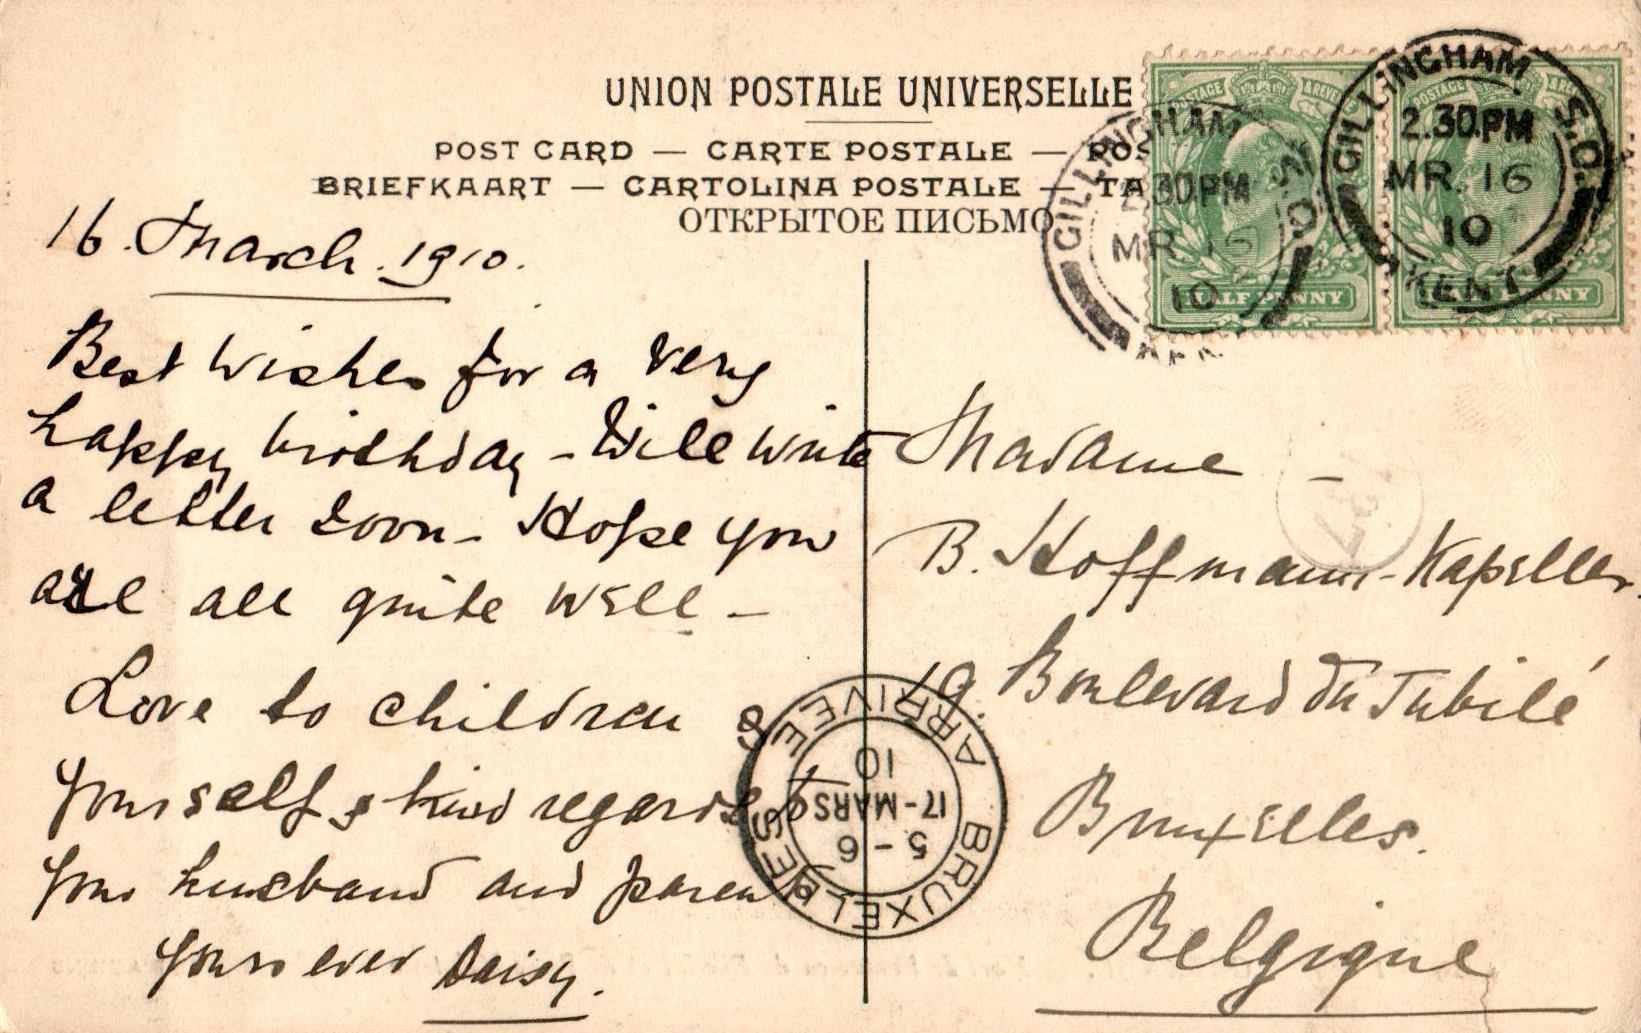 UNION POSTALE UNIVERSELLE
POST CARD — CARTE POSTALE — POS
BRIEFKAART — CARTOLINA POSTALE — TA
ОТКРЫТОЕ ПИСЬМО
POSTAGE & REVE
HALF PENNY
POSTAGE & REVE
HALF PENNY
GILLINGHAM S.O.
2.30PM
MR 16
10
KEN
GILLINGHAM S.O.
2.30.PM
MR. 16
10
KENT
16. March. 1910.
Best wishes for a very
happy birthday - Will write
a letter soon - Hope you
are all quite well -
Love to children
yourself & kind regards to
your husband and parents
Yours ever Daisy.
Madame -
B. Hoffmann-Kapeller.
79. Boulevard du Jubilé
Bruxelles.
Belgique
BRUXELLES 6 ARRIVEE 6
5-6
17-MARS
10